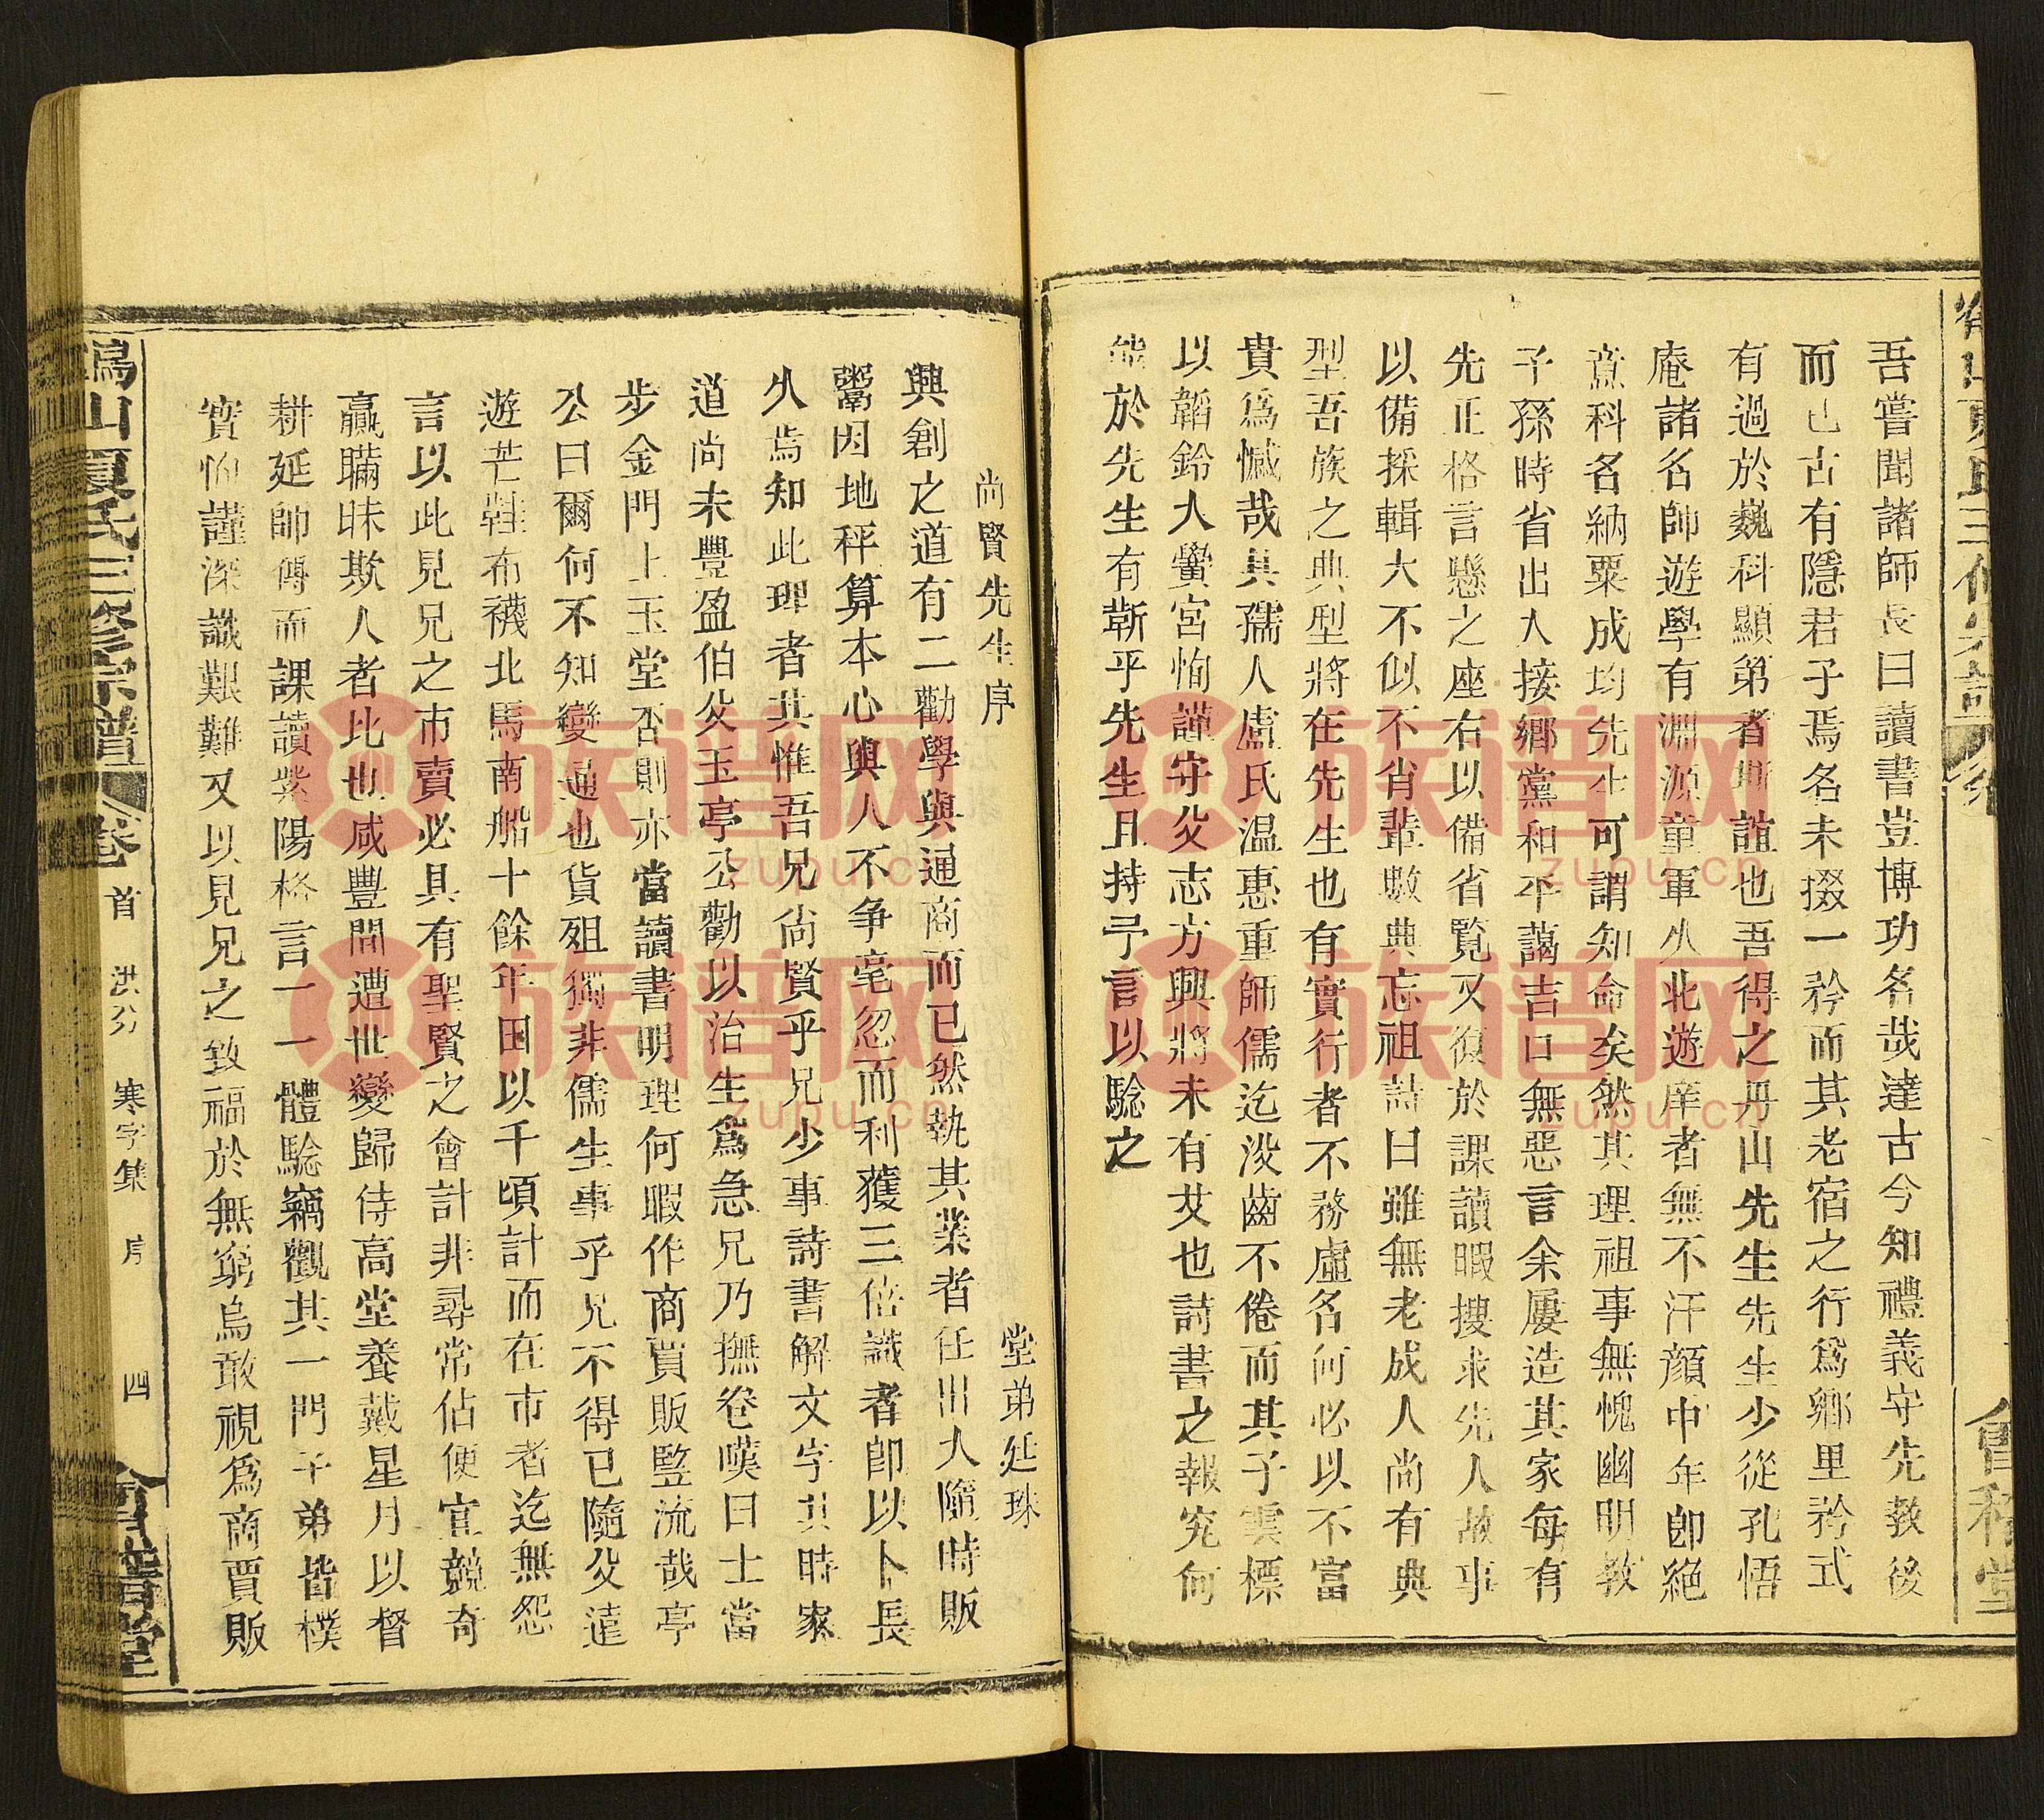 吾嘗聞諸師長曰讀書豈博功名哉達古今知禮義守先教後
而已古有隱君子焉名未掇一衿而其老宿之行爲鄉里矜式
有過於巍科顯第者斯誼也吾得之丹山先生先生少從孔悟
庵諸名帥遊學有淵源童軍久北遊庠者無不汗顏中年卽絕
意科名納粟成均先生可謂知命矣然其理祖事無愧幽明教
子孫時省出入接鄉黨和平藹吉口無惡言余屢造其家每有
先正格言懸之座右以備省覽又復於課讀暇搜求先人故事
以備採輯大不似不肖輩數典忘祖詩曰雖無老成人尚有典
型吾族之典型將在先生也有實行者不務虛名何必以不富
貴爲憾哉其孺人盧氏温惠重師儒迄沒齒不倦而其子雲標
以韜鈴入黌宮恂謹守父志方興將未有艾也詩書之報究何
能於先生有靳乎先生且持予言以騐之
尚賢先生序
堂弟延珠
興創之道有二勸學與通商而已然執其業者任出入隨時販
鬻因地秤算本心與人不争毫忽而利獲三倍識者卽以卜長
久焉知此理者其惟吾兄尚賢乎兄少事詩書解文字其時家
道尚未豐盈伯父玉亭公勸以治生爲急兄乃撫卷嘆曰士當
步金門上玉堂否則亦當讀書明理何暇作商賈販監流哉亭
公曰爾何不知變通也貨殂獨非儒生事乎兄不得已隨父遠
遊芒鞋布襪北馬南船十餘年田以千頃計而在市者迄無怨
言以此見兄之市賣必具有聖賢之會計非尋常佔便宜競奇
贏瞞昧欺人者比也咸豐間遭世變歸侍高堂養戴星月以督
耕延師傅而課讀紫陽格言一一體騐竊觀其一門子弟皆樸
實恂謹深識艱難又以見兄之致福於無窮烏敢視爲商賈販
山夏氏三修宗譜
卷首
洪分
寒字集
序
四